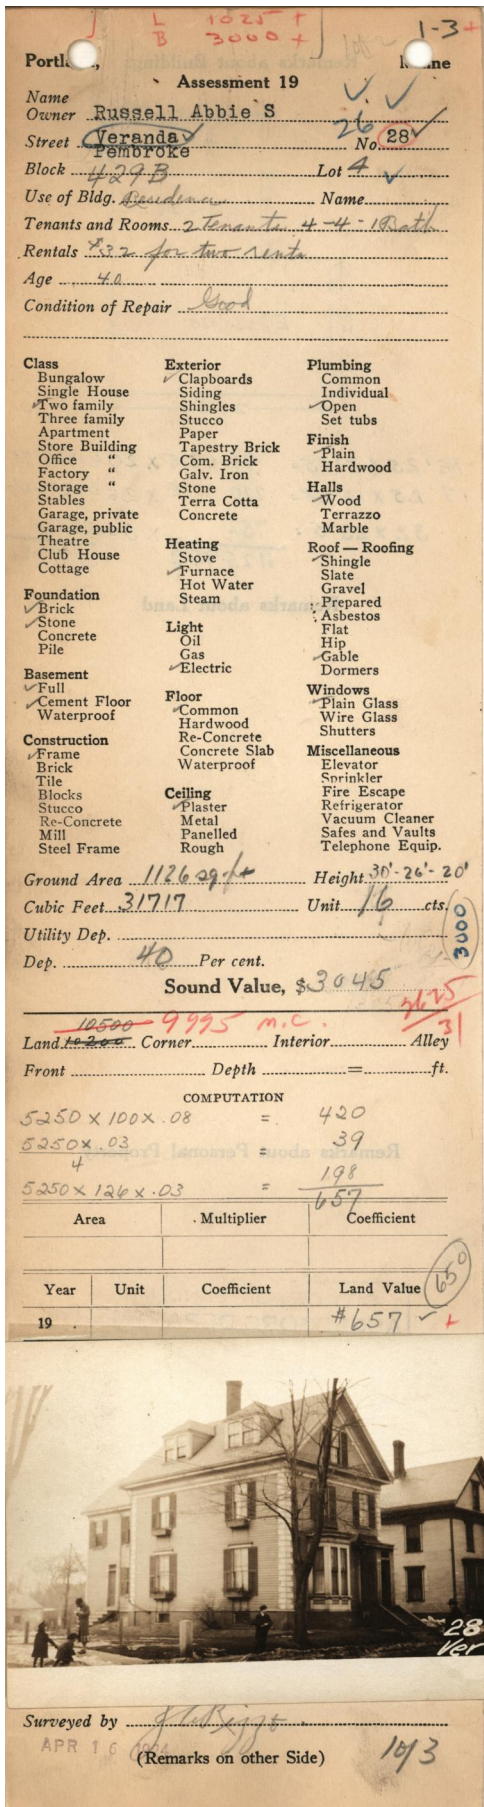 L 1025 +
B 3000 +
1-3 +
Portland, Maine
Assessment 19
Name
Owner Russell Abbie S
26
Street Veranda No. 28
Pembroke
Block 429B Lot 4
Use of Bldg. Residence Name
Tenants and Rooms 2 Tenants 4-4-1 Bath
Rentals $32 for two rents
Age 40
Condition of Repair Good
Class
Bungalow
Single House
✓Two family
Three family
Apartment
Store Building
Office "
Factory "
Storage "
Stables
Garage, private
Garage, public
Theatre
Club House
Cottage
Foundation
✓Brick
✓Stone
Concrete
Pile
Basement
✓Full
✓Cement Floor
Waterproof
Construction
✓Frame
Brick
Tile
Blocks
Stucco
Re-Concrete
Mill
Steel Frame
Exterior
✓Clapboards
Siding
Shingles
Stucco
Paper
Tapestry Brick
Com. Brick
Galv. Iron
Stone
Terra Cotta
Concrete
Heating
Stove
✓Furnace
Hot Water
Steam
Light
Oil
Gas
✓Electric
Floor
✓Common
Hardwood
Re-Concrete
Concrete Slab
Waterproof
Ceiling
✓Plaster
Metal
Panelled
Rough
Plumbing
Common
Individual
✓Open
Set tubs
Finish
✓Plain
Hardwood
Halls
✓Wood
Terrazzo
Marble
Roof — Roofing
✓Shingle
Slate
Gravel
Prepared
Asbestos
Flat
Hip
✓Gable
Dormers
Windows
✓Plain Glass
Wire Glass
Shutters
Miscellaneous
Elevator
Sprinkler
Fire Escape
Refrigerator
Vacuum Cleaner
Safes and Vaults
Telephone Equip.
Ground Area 1126 sq. ft Height 30'-26'-20'
Cubic Feet 31717 Unit 16 cts.
Utility Dep.
3000
Dep. 40 Per cent.
Sound Value, $3045
2625
31
10500 9995 m.c.
Land 10200 Corner Interior Alley
Front Depth = ft.
COMPUTATION
5250 x 100 x .08 = 420
5250 x .03 = 39
4
5250 x 126 x .03 = 198
657
Area Multiplier Coefficient
650
Year Unit Coefficient Land Value
19 $657 ✓ +
28
Ver
Surveyed by
APR 16
(Remarks on other Side)
1 of 3